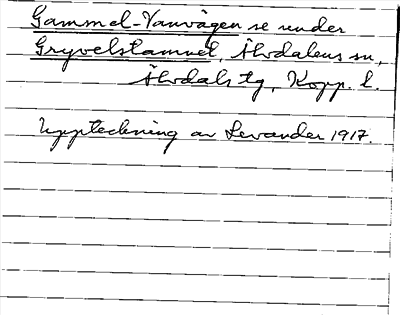 Gammel-Vanvägen se under
Gryvelstamuet, Älvdalens sn,
Älvdals tg, Kopp. l.
Uppteckning av Levander 1917.